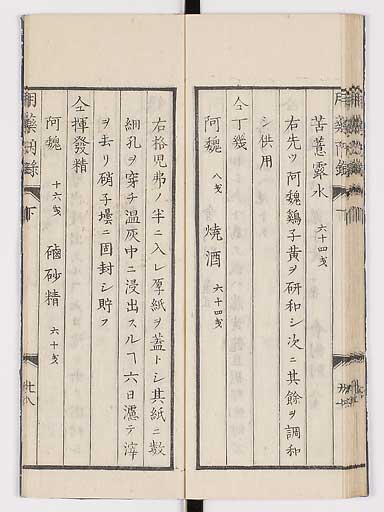 苦薏露水 六十四戔
右先ツ阿魏鷄子黄ヲ研和シ次ニ其餘ヲ調和
シ供用
仝丁幾
阿魏 八戔 燒酒 六十四戔
右格児弗ノ半ニ入レ厚紙ヲ蓋トシ其紙ニ数
細孔ヲ穿チ温灰中ニ浸出スルヿ六日濾テ滓
ヲ去リ硝子壜ニ固封シ貯フ
仝揮發精
阿魏 十六戔 磠砂精 六十戔
下 廿八